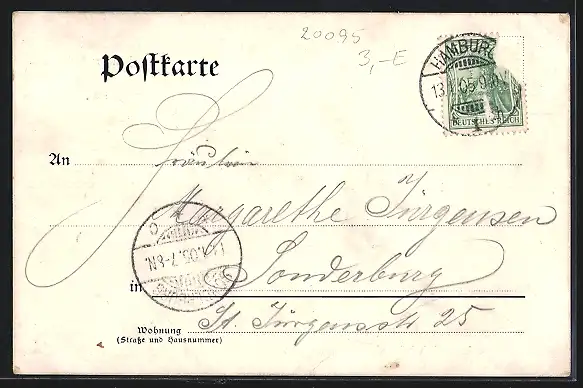 20095
3,-E
Postkarte
HAMBURG
13. 05. 9
1
DEUTSCHES REICH
An Fräulein
Margarethe Jürgensen
05.7-8N.
in Sonderburg
Wohnung St. Jürgensstr 25
(Straße und Hausnummer)